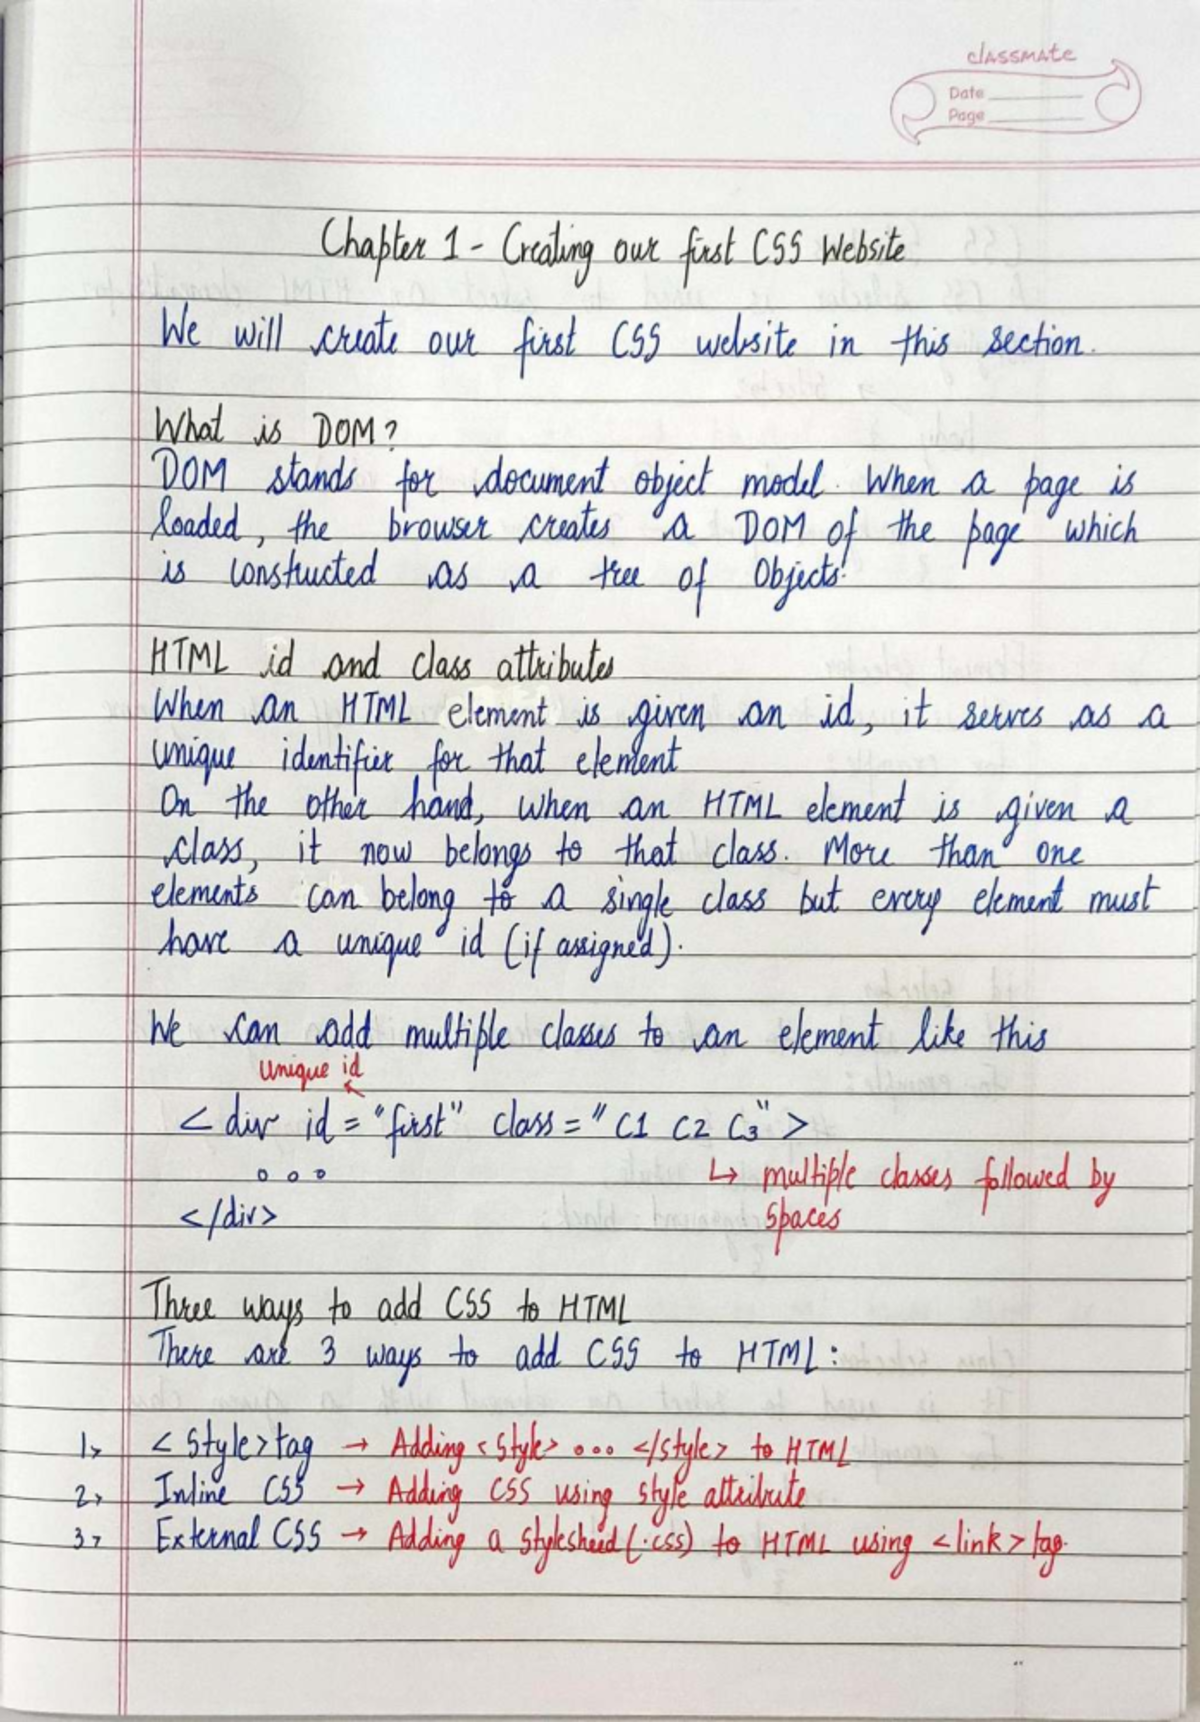 classmate
Date
Page
Chapter 1 - Creating our first CSS Website
We will create our first CSS website in this section.
What is DOM?
DOM stands for document object model. When a page is
loaded, the browser creates a DOM of the page which
is constructed as a tree of Objects.
HTML id and class attributes
When an HTML element is given an id, it serves as a
unique identifier for that element
On the other hand, when an HTML element is given a
class, it now belongs to that class. More than one
elements can belong to a single class but every element must
have a unique id (if assigned).
We can add multiple classes to an element like this
Unique id
<div id = "first" class = "C1 C2 C3">
...
↳ multiple classes followed by
</div>
spaces
Three ways to add CSS to HTML
There are 3 ways to add CSS to HTML:
1> <style> tag → Adding <style> ... </style> to HTML
2> Inline CSS → Adding CSS using style attribute
3> External CSS → Adding a stylesheed (.css) to HTML using <link> tag.